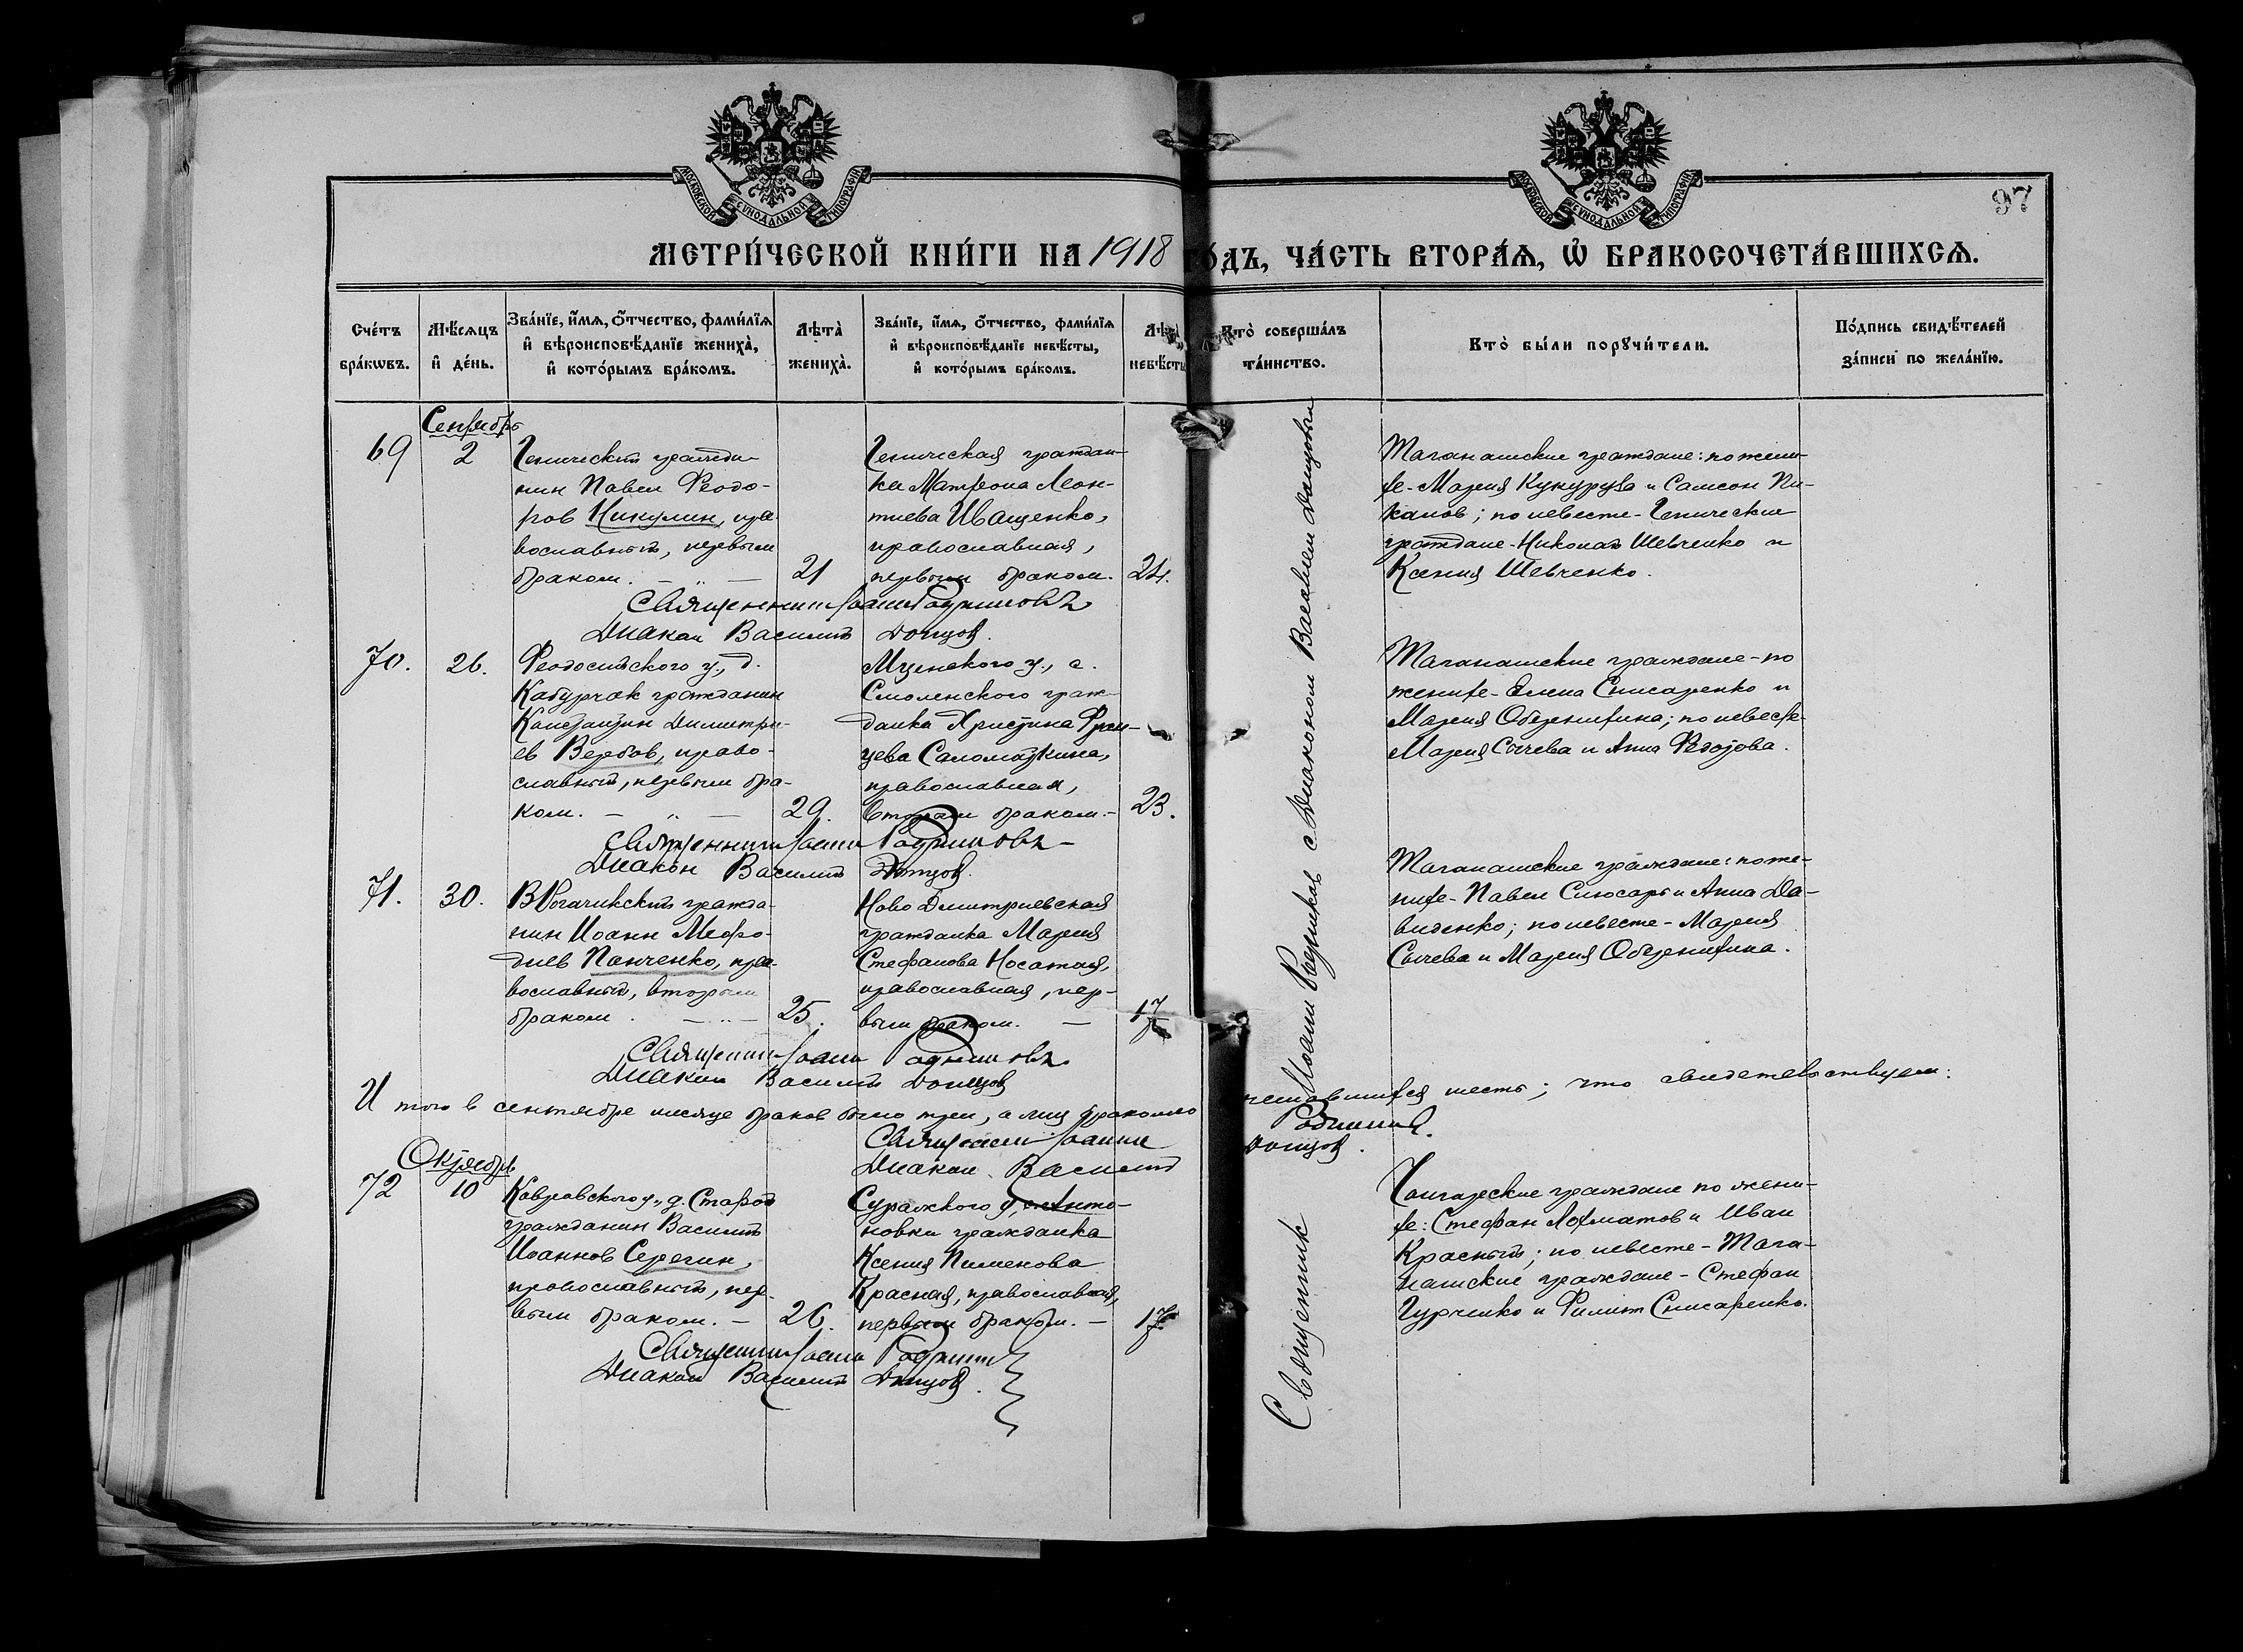 МОСКОВСКОЙ СѴНОДАЛЬНОЙ ТИПОГРАФІИ
МОСКОВСКОЙ СѴНОДАЛЬНОЙ ТИПОГРАФІИ
97
МЕТРИ́ЧЕСКОЙ КНИ́ГИ НА 1918 ГО́ДЪ, ЧА́СТЬ ВТОРА́Ѧ, Ѽ БРАКОСОЧЕТА́ВШИХСѦ.
Сче́тъ бра́кѡвъ.
Мѣ́сѧцъ и҆ де́нь.
Зва́нїе, и҆́мѧ, ѻ҆́тчество, фами́лїѧ и҆ вѣроисповѣ́данїе жениха̀, и҆ кото́рымъ бра́комъ.
Лѣта̀ жениха̀.
Зва́нїе, и҆́мѧ, ѻ҆́тчество, фами́лїѧ и҆ вѣроисповѣ́данїе невѣ́сты, и҆ кото́рымъ бра́комъ.
невѣ́сты
Кто̀ соверша́лъ та́инство.
Кто̀ бы́ли порꙋчи́тели.
По́дпись свидѣ́телей за́писи по жела́нїю.
Сентябрь
69
2
Генический гражда-
нин Павел Феодо-
ров Никулин, пра-
вославный, первым
браком. — " —
21
Геническая граждан-
ка Матрона Леон-
тиева Иващенко,
православная,
первым браком.
24.
Таганашские граждане: по жени-
хе - Мария Кукуруза и Самсон Пи-
калов; по невесте - Генические
граждане - Николай Шевченко и
Ксения Шевченко.
Священник Иоанн Родниковъ
Диакон Василий Донцов.
70.
26.
Феодосийского у., д.
Кабурчак гражданин
Константин Димитри-
ев Вербов, право-
славный, первым бра-
ком. — " —
29.
Мценского у., с.
Смоленского граж-
данка Христина Фран-
цева Саломаткина,
православная,
вторым браком. -
23.
Таганашские граждане - по
женихе - Елена Снисаренко и
Мария Обеременко; по невесте -
Мария Сычева и Анна Федотова.
Священник Иоанн Родниковъ
Диакон Василий Донцов.
71.
30.
В Рогачикский гражда-
нин Иоанн Мефо-
диев Панченко, пра-
вославный, вторым
браком. — " —
25.
Ново Дмитриевская
гражданка Мария
Стефанова Носатая,
православная, пер-
вым браком. —
17
Таганашские граждане: по же-
нихе - Павел Слюсарь и Анна Да-
виденко; по невесте - Мария
Сычева и Мария
Священник Иоанн Родниковъ
Диакон Василий Донцов
И того в сентябре месяце браков было три, а лиц бракосочетавшихся шесть; что свидетельствуем:
Священник Иоанн Родников.
Диакон Василий Донцов.
Октябрь
72
10
Ковровского у., д. Старой
гражданин Василий
Иоаннов Серегин,
православный, пер-
вым браком. —
26.
Суражского у., Анто-
новки гражданка
Ксения Пименова
Красная, православная,
первым браком. —
17
Чонгарские граждане по жени-
хе: Стефан Лохматов и Иван
Красный; по невесте - Тага-
нашские граждане - Стефан
Гурченко и Филип Снисаренко.
Священник Иоанн Родников
Диакон Василий Донцов.
Священник Иоанн Родников с диаконом Василием Донцовым